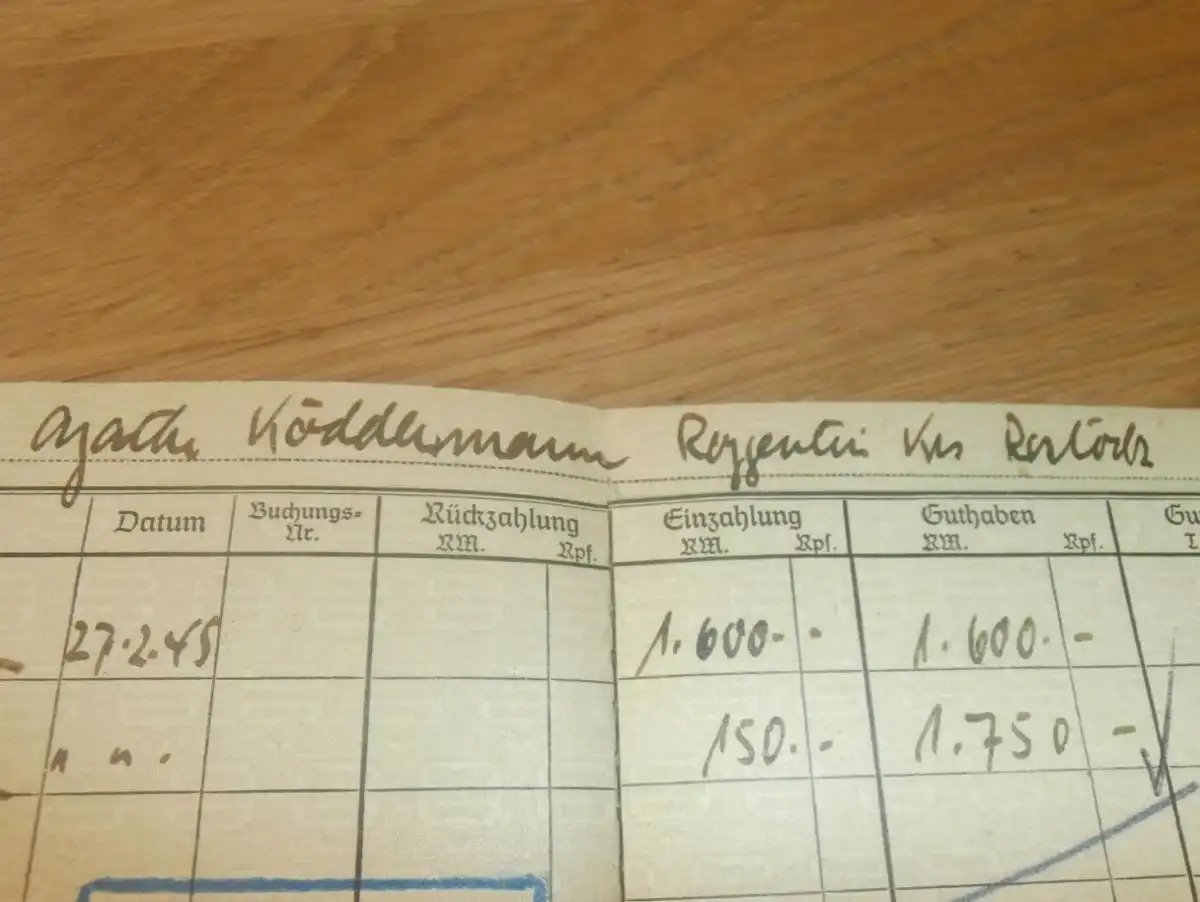 Agathe Köddermann Roggentin Krs Rostock
Datum Buchungs- Rückzahlung Einzahlung Guthaben
Nr. RM. Rpf. RM. Rpf. RM. Rpf.
27.2.45 1.600.- - 1.600.- -
" ". 150.- - 1.750 -